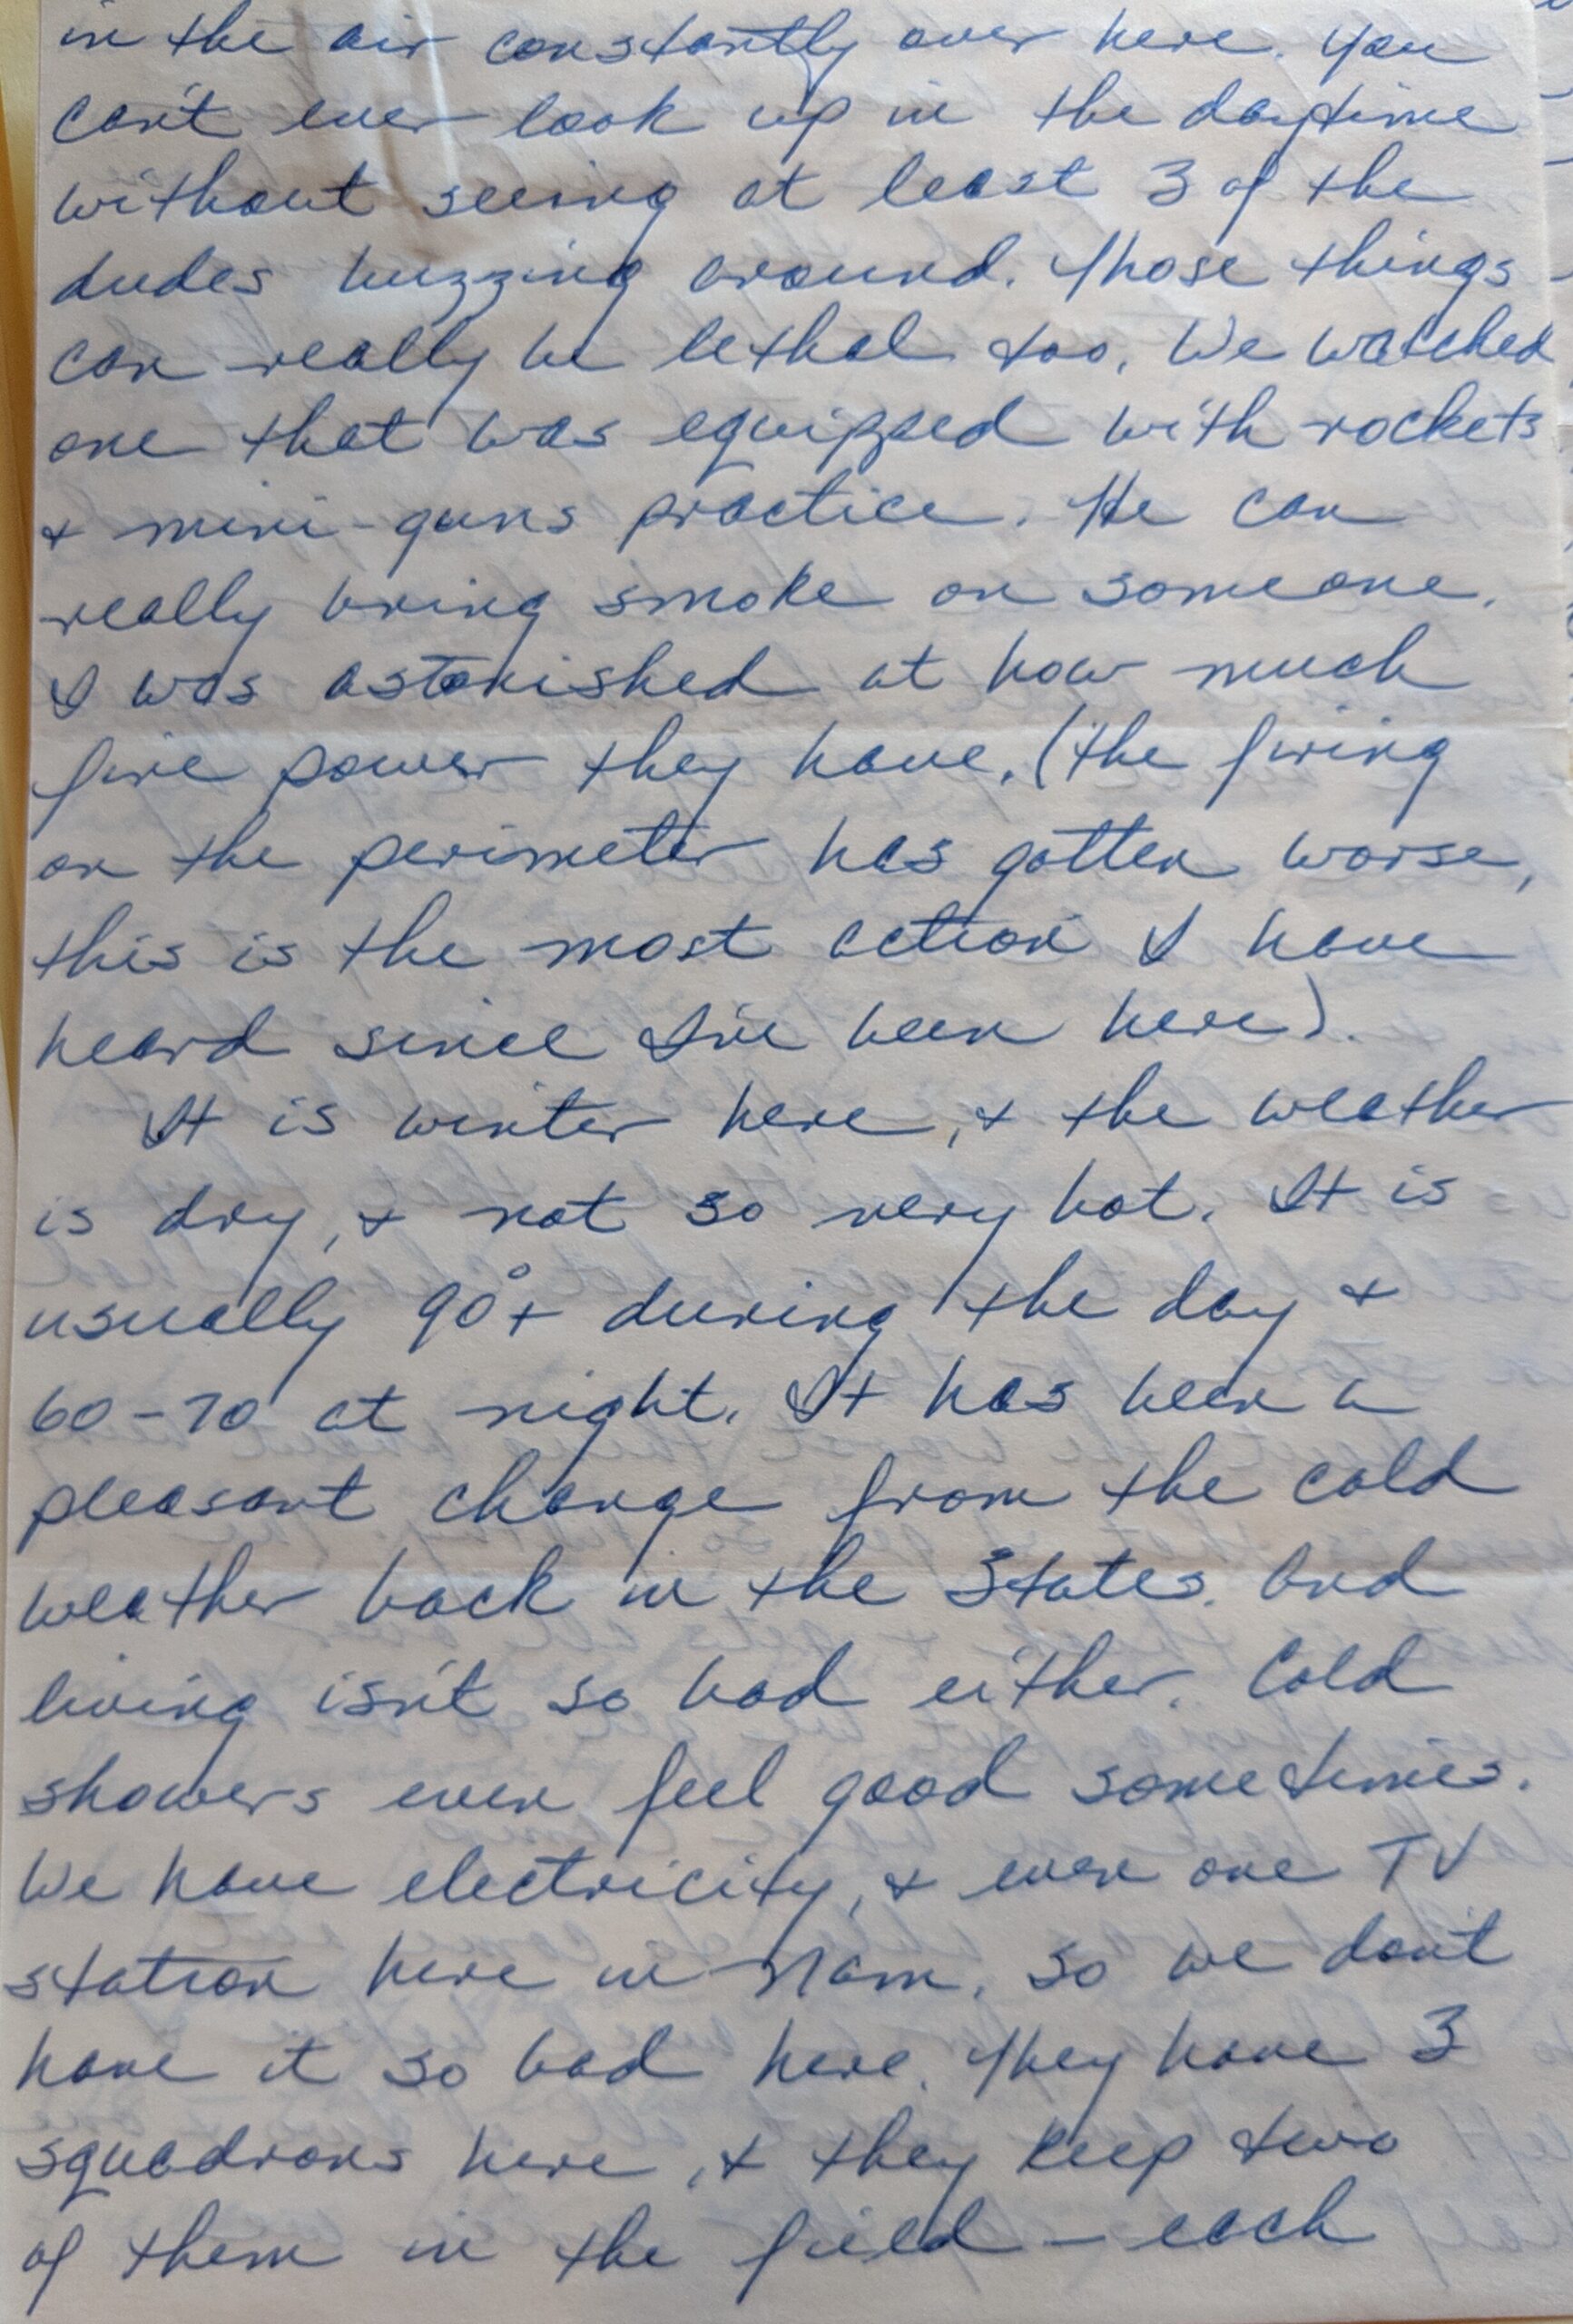 in the air constantly over here. You
can't ever look up in the daytime
without seeing at least 3 of the
dudes buzzing around. Those things
can really be lethal too. We watched
one that was equipped with rockets
+ mini-guns practice. He can
really bring smoke on someone.
I was astonished at how much
fire power they have. (The firing
on the perimeter has gotten worse,
this is the most action I have
heard since I've been here).
It is winter here, + the weather
is dry, + not so very hot. It is
usually 90°+ during the day +
60-70 at night. It has been a
pleasant change from the cold
weather back in the States. And
living isn't so bad either. Cold
showers even feel good sometimes.
We have electricity, + even one TV
station here in Nam. So we don't
have it so bad here. They have 3
squadrons here, + they keep two
of them in the field - each